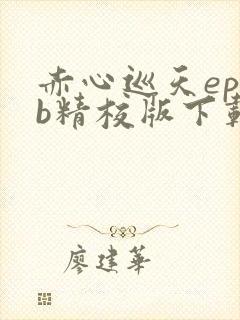 赤心巡天ep
b精校版下載
廖建華